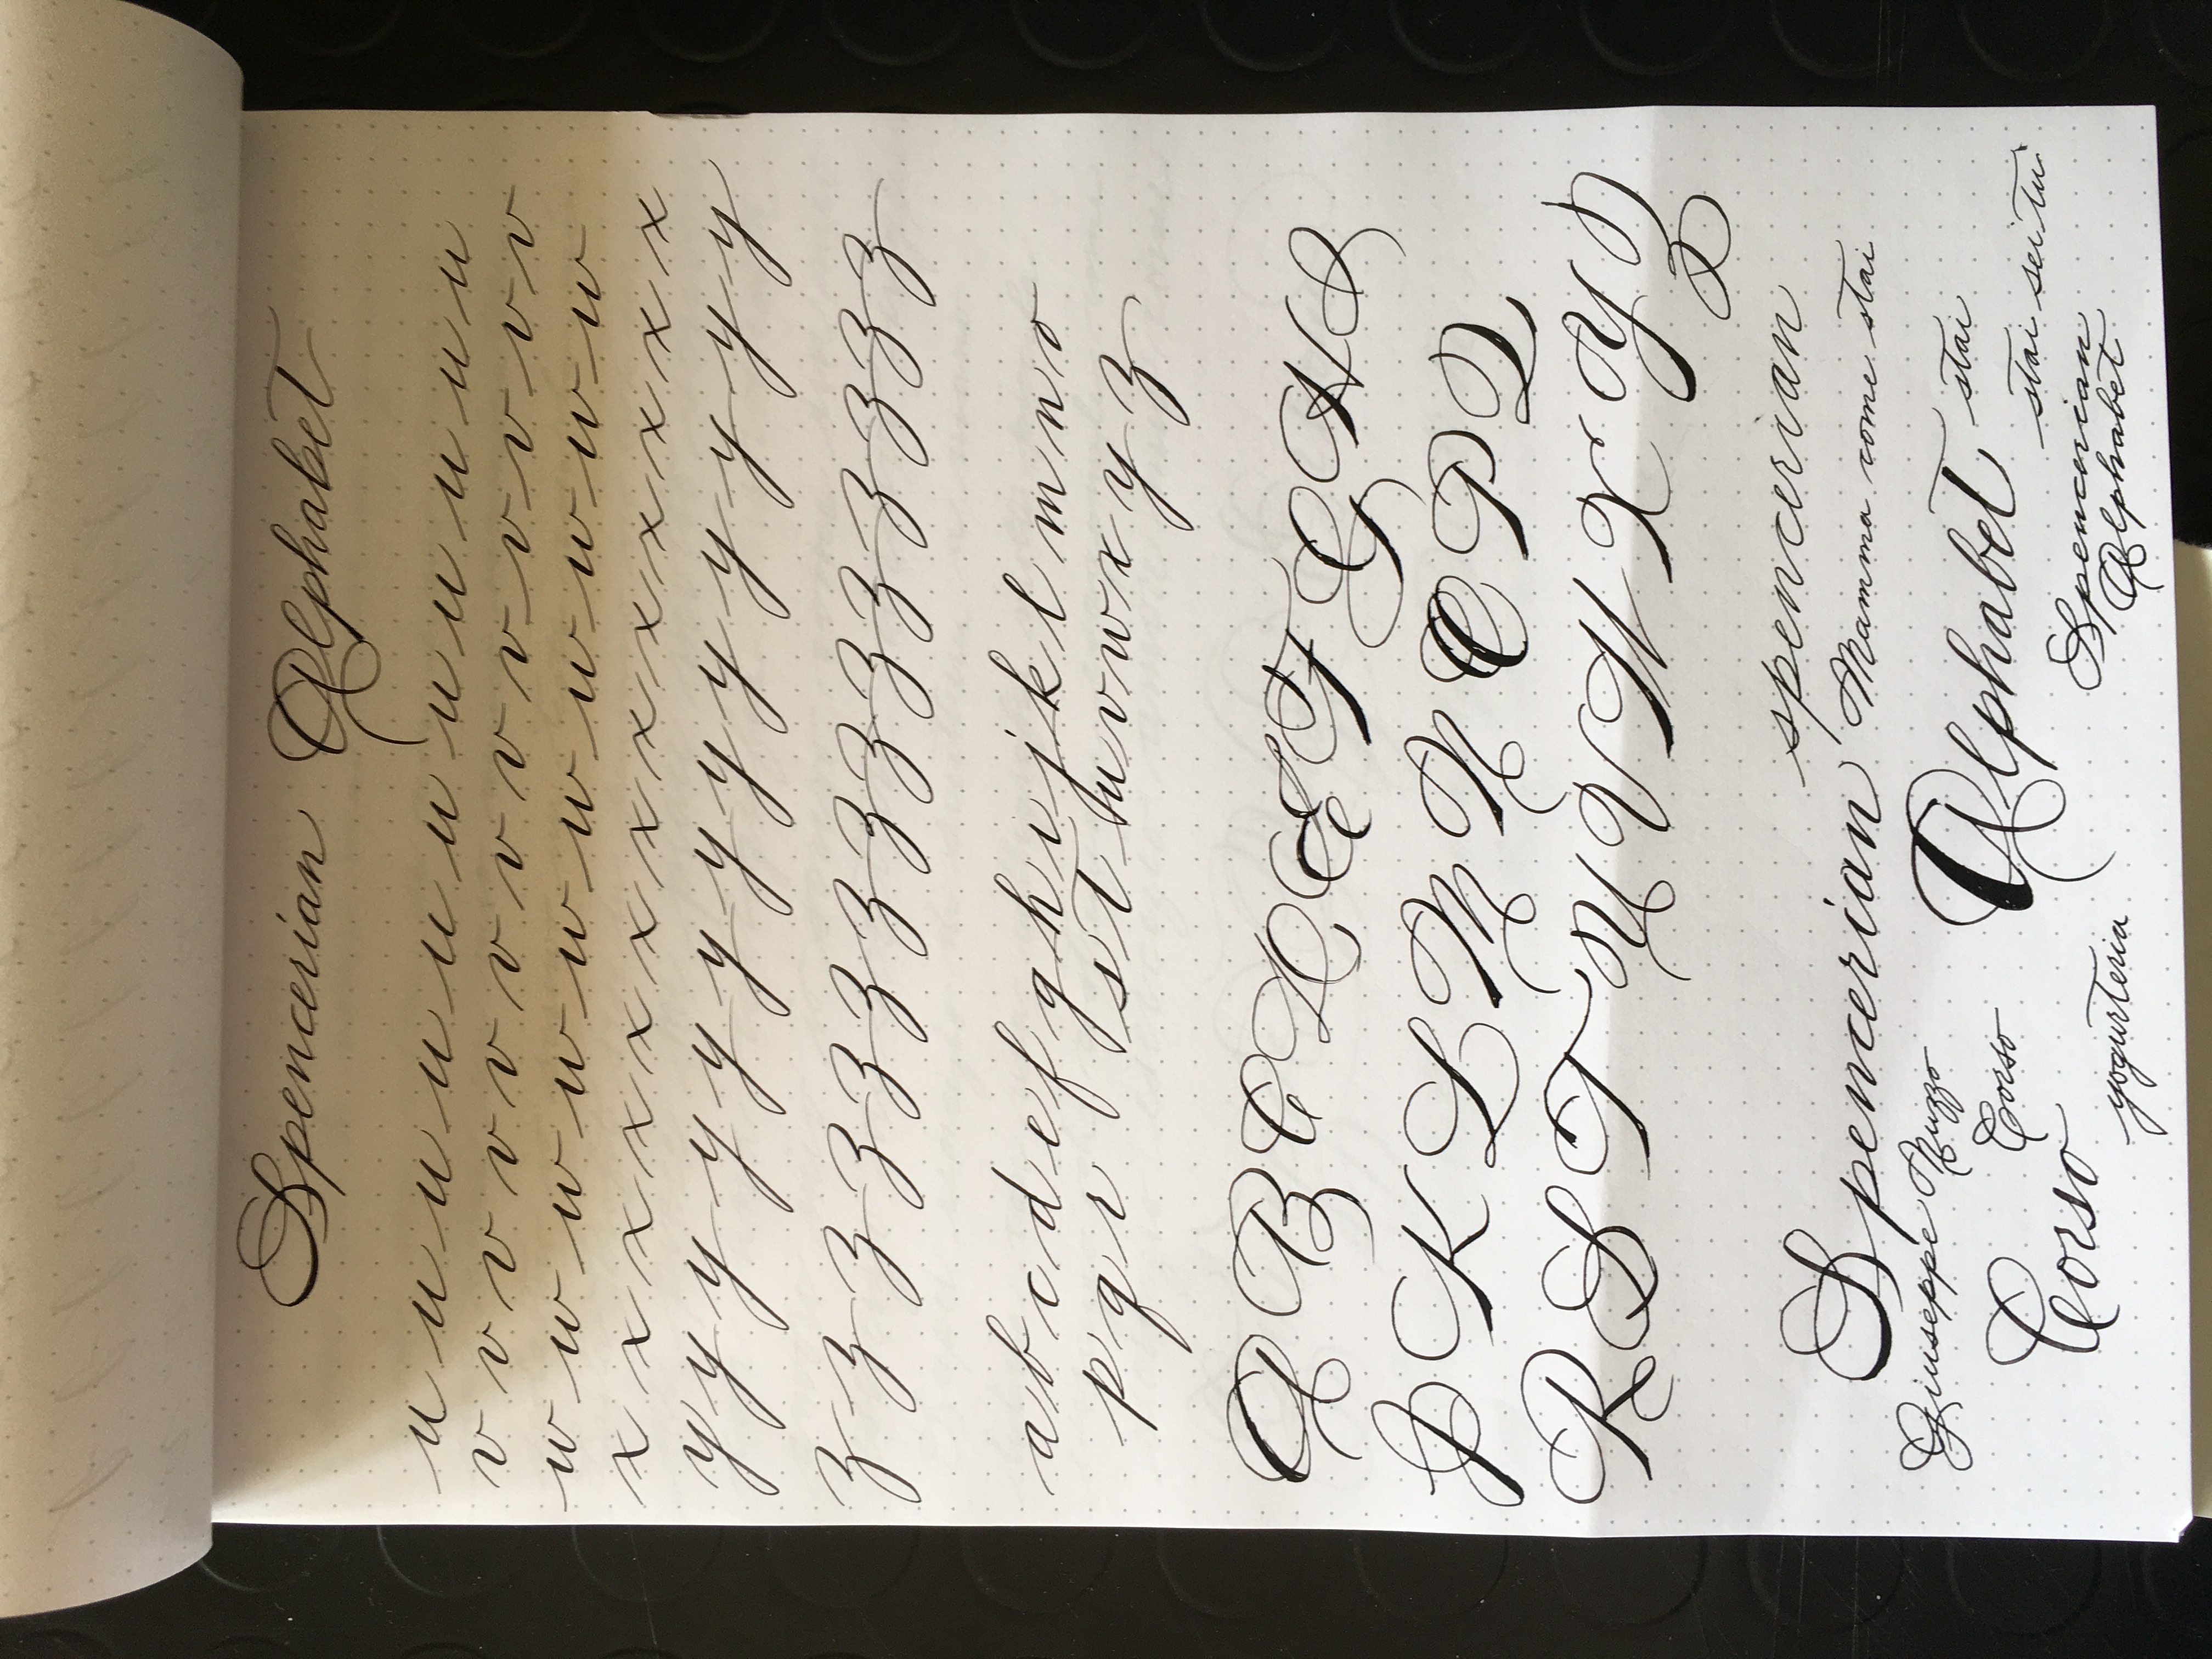 Spencerian Alphabet
u u u u u u u u u u u
v v v v v v v v v v v v v
w w w w w w w w w w
x x x x x x x x x x x x x
y y y y y y y y y y y y y
z z z z z z z z z z z z z z z
a b c d e f g h i j k l m n o
p q r s t u v w x y z
A B C D E F G H I
J K L M N O P Q
R S T U V W X Y Z
spencerian
Spencerian Mamma come stai
Giuseppe Ruzzo Alphabet stai
Corso stai sei tu
Corso Spencerian
yogurteria Alphabet